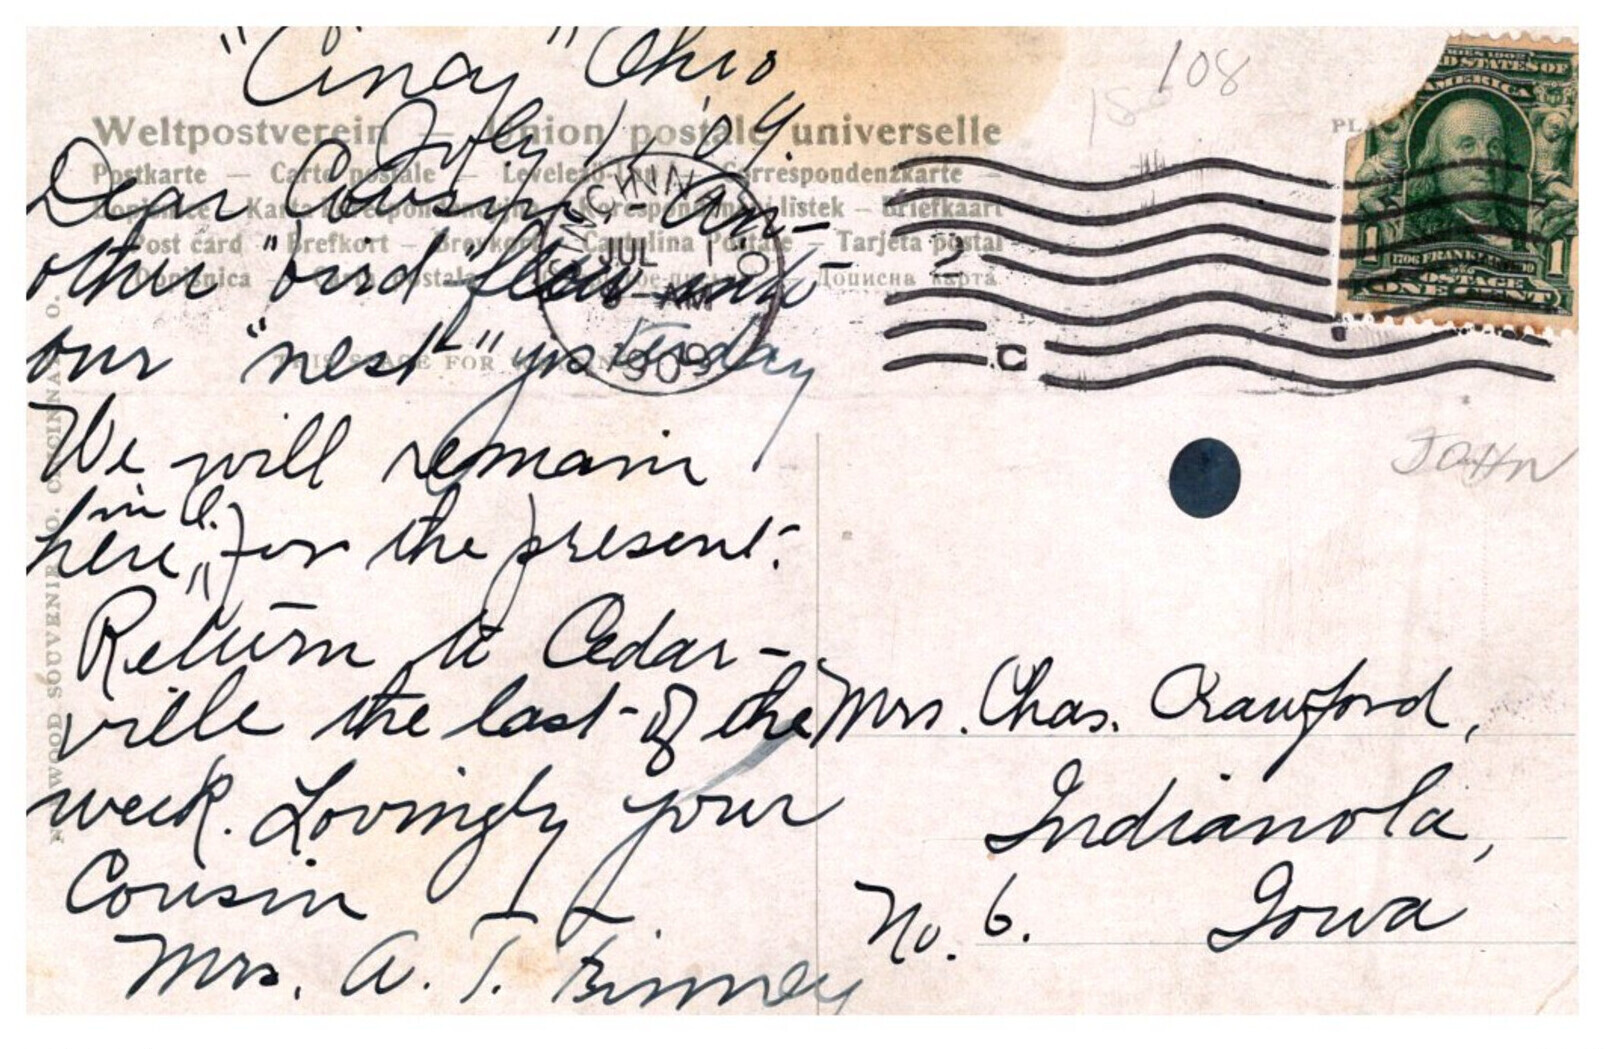 "Cincy" Ohio
July 1, '09.
Dear Cousin:- An-
other "bird" flew into
our "nest" yesterday
We will remain
in C.
here, for the present.
Return to Cedar-
ville the last of the
week. Lovingly your
Cousin
Mrs. A. T. Finney
Weltpostverein — Union postale universelle
Postkarte — Carte postale — Levelező-Lap — Correspondenzkarte —
Dopisnice — Karta korespondencyjna — Korespondenční listek — Briefkaart
Post card — Brefkort — Brevkort — Cartolina Postale — Tarjeta postal
Dopisnica — postala — Дописна карта
THIS SPACE FOR
SOUVENIR CO. CINCINNATI, O.
CINCINNATI, O.
JUL 1
AM
1909
2
C
108
JOHN
PLA
SERIES 1902
UNITED STATES OF
AMERICA
1706 FRANKLIN 1790
1 1
POSTAGE
ONE CENT
Mrs. Chas. Crawford,
Indianola,
No. 6. Iowa